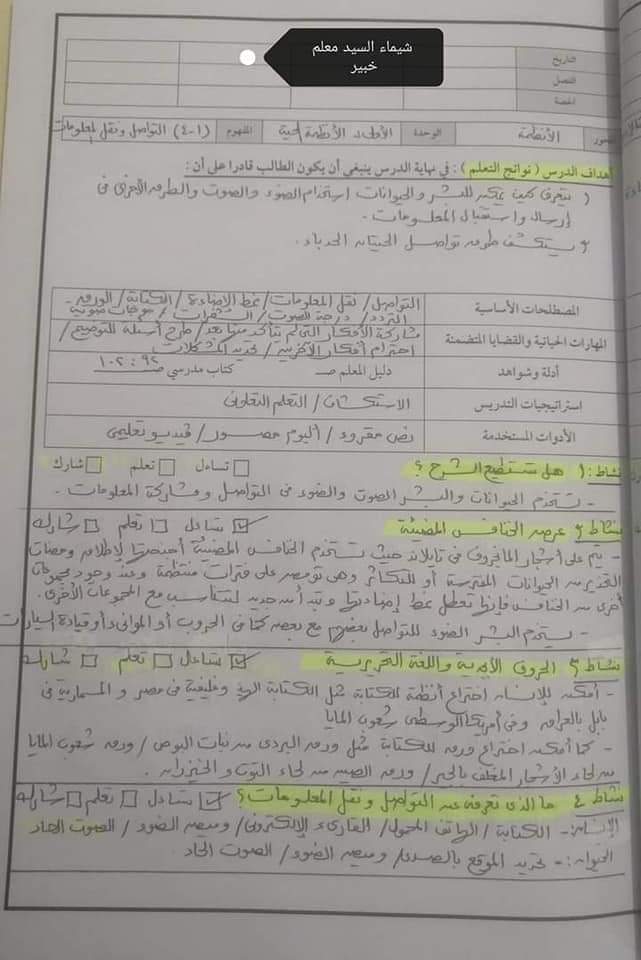 شيماء السيد معلم
خبير
التاريخ
الفصل
الحصة
المحور الأنظمة الوحدة الأولى الأنظمة الحية المفهوم (١-٤) التواصل ونقل المعلومات
أهداف الدرس ( نواتج التعلم ) : في نهاية الدرس ينبغي أن يكون الطالب قادرا على أن :
١) يتعرف كيف يمكن للبشر والحيوانات استخدام الضوء والصوت والطرق الأخرى في
إرسال واستقبال المعلومات .
٢) يستكشف طرق تواصل الحيتان الحدباء .
المصطلحات الأساسية التواصل / نقل المعلومات / نمط الإضاءة / الكتابة / الورق -
التردد / درجة الصوت / الشفرات / موجات صوتية
المهارات الحياتية والقضايا المتضمنة مشاركة الأفكار التي لم نتأكد منها بعد / طرح أسئلة للتوضيح /
احترام أفكار الآخرين / تحديد المشكلات
أدلة وشواهد دليل المعلم صـ كتاب مدرسي صـ ٩٢ : ١٠٢
استراتيجيات التدريس الاستكشاف / التعلم التعاوني
الأدوات المستخدمة نص مقروء / ألبوم مصور / فيديو تعليمي
نشاط : ١ هل تستطيع الشرح ؟ تساءل تعلم شارك
- تستخدم الحيوانات والبشر الصوت والضوء في التواصل ومشاركة المعلومات .
نشاط ٢ عرض الخنافس المضيئة تساءل تعلم شارك
- يتم على أشجار المانجروف في تايلاند حيث تستخدم الخنافس المضيئة أجنحتها لإطلاق ومضات
التحذير من الحيوانات المفترسة أو للتكاثر وهي تومض على فترات منتظمة وعند وجود مجموعات
أخرى من الخنافس فإنها تعطل نمط إضاءتها وتبدأ من جديد لتتناسب مع المجموعات الأخرى .
- يستخدم البشر الضوء للتواصل بعضهم مع بعض كما في الحروب أو الموانئ أو قيادة السيارات
نشاط ٣ الحروف الأبجدية واللغة التحريرية تساءل تعلم شارك
- أمكن للإنسان اختراع أنظمة للكتابة مثل الكتابة الهيروغليفية في مصر و المسمارية في
بابل بالعراق وفي أمريكا الوسطى شعوب المايا
- كما أمكن اختراع ورق للكتابة مثل ورق البردي من نبات البوص / ورق شعوب المايا
من لحاء الأشجار المغلف بالجير / ورق الصين من لحاء التوت و الخيزران .
نشاط ٤ ما الذي تعرفه عن التواصل ونقل المعلومات ؟ تساءل تعلم شارك
الإنسان :- الكتابة / الهاتف المحمول / القارئ الإلكتروني / وميض الضوء / الصوت الحاد
الحيوان :- تحديد الموقع بالصدى / وميض الضوء / الصوت الحاد